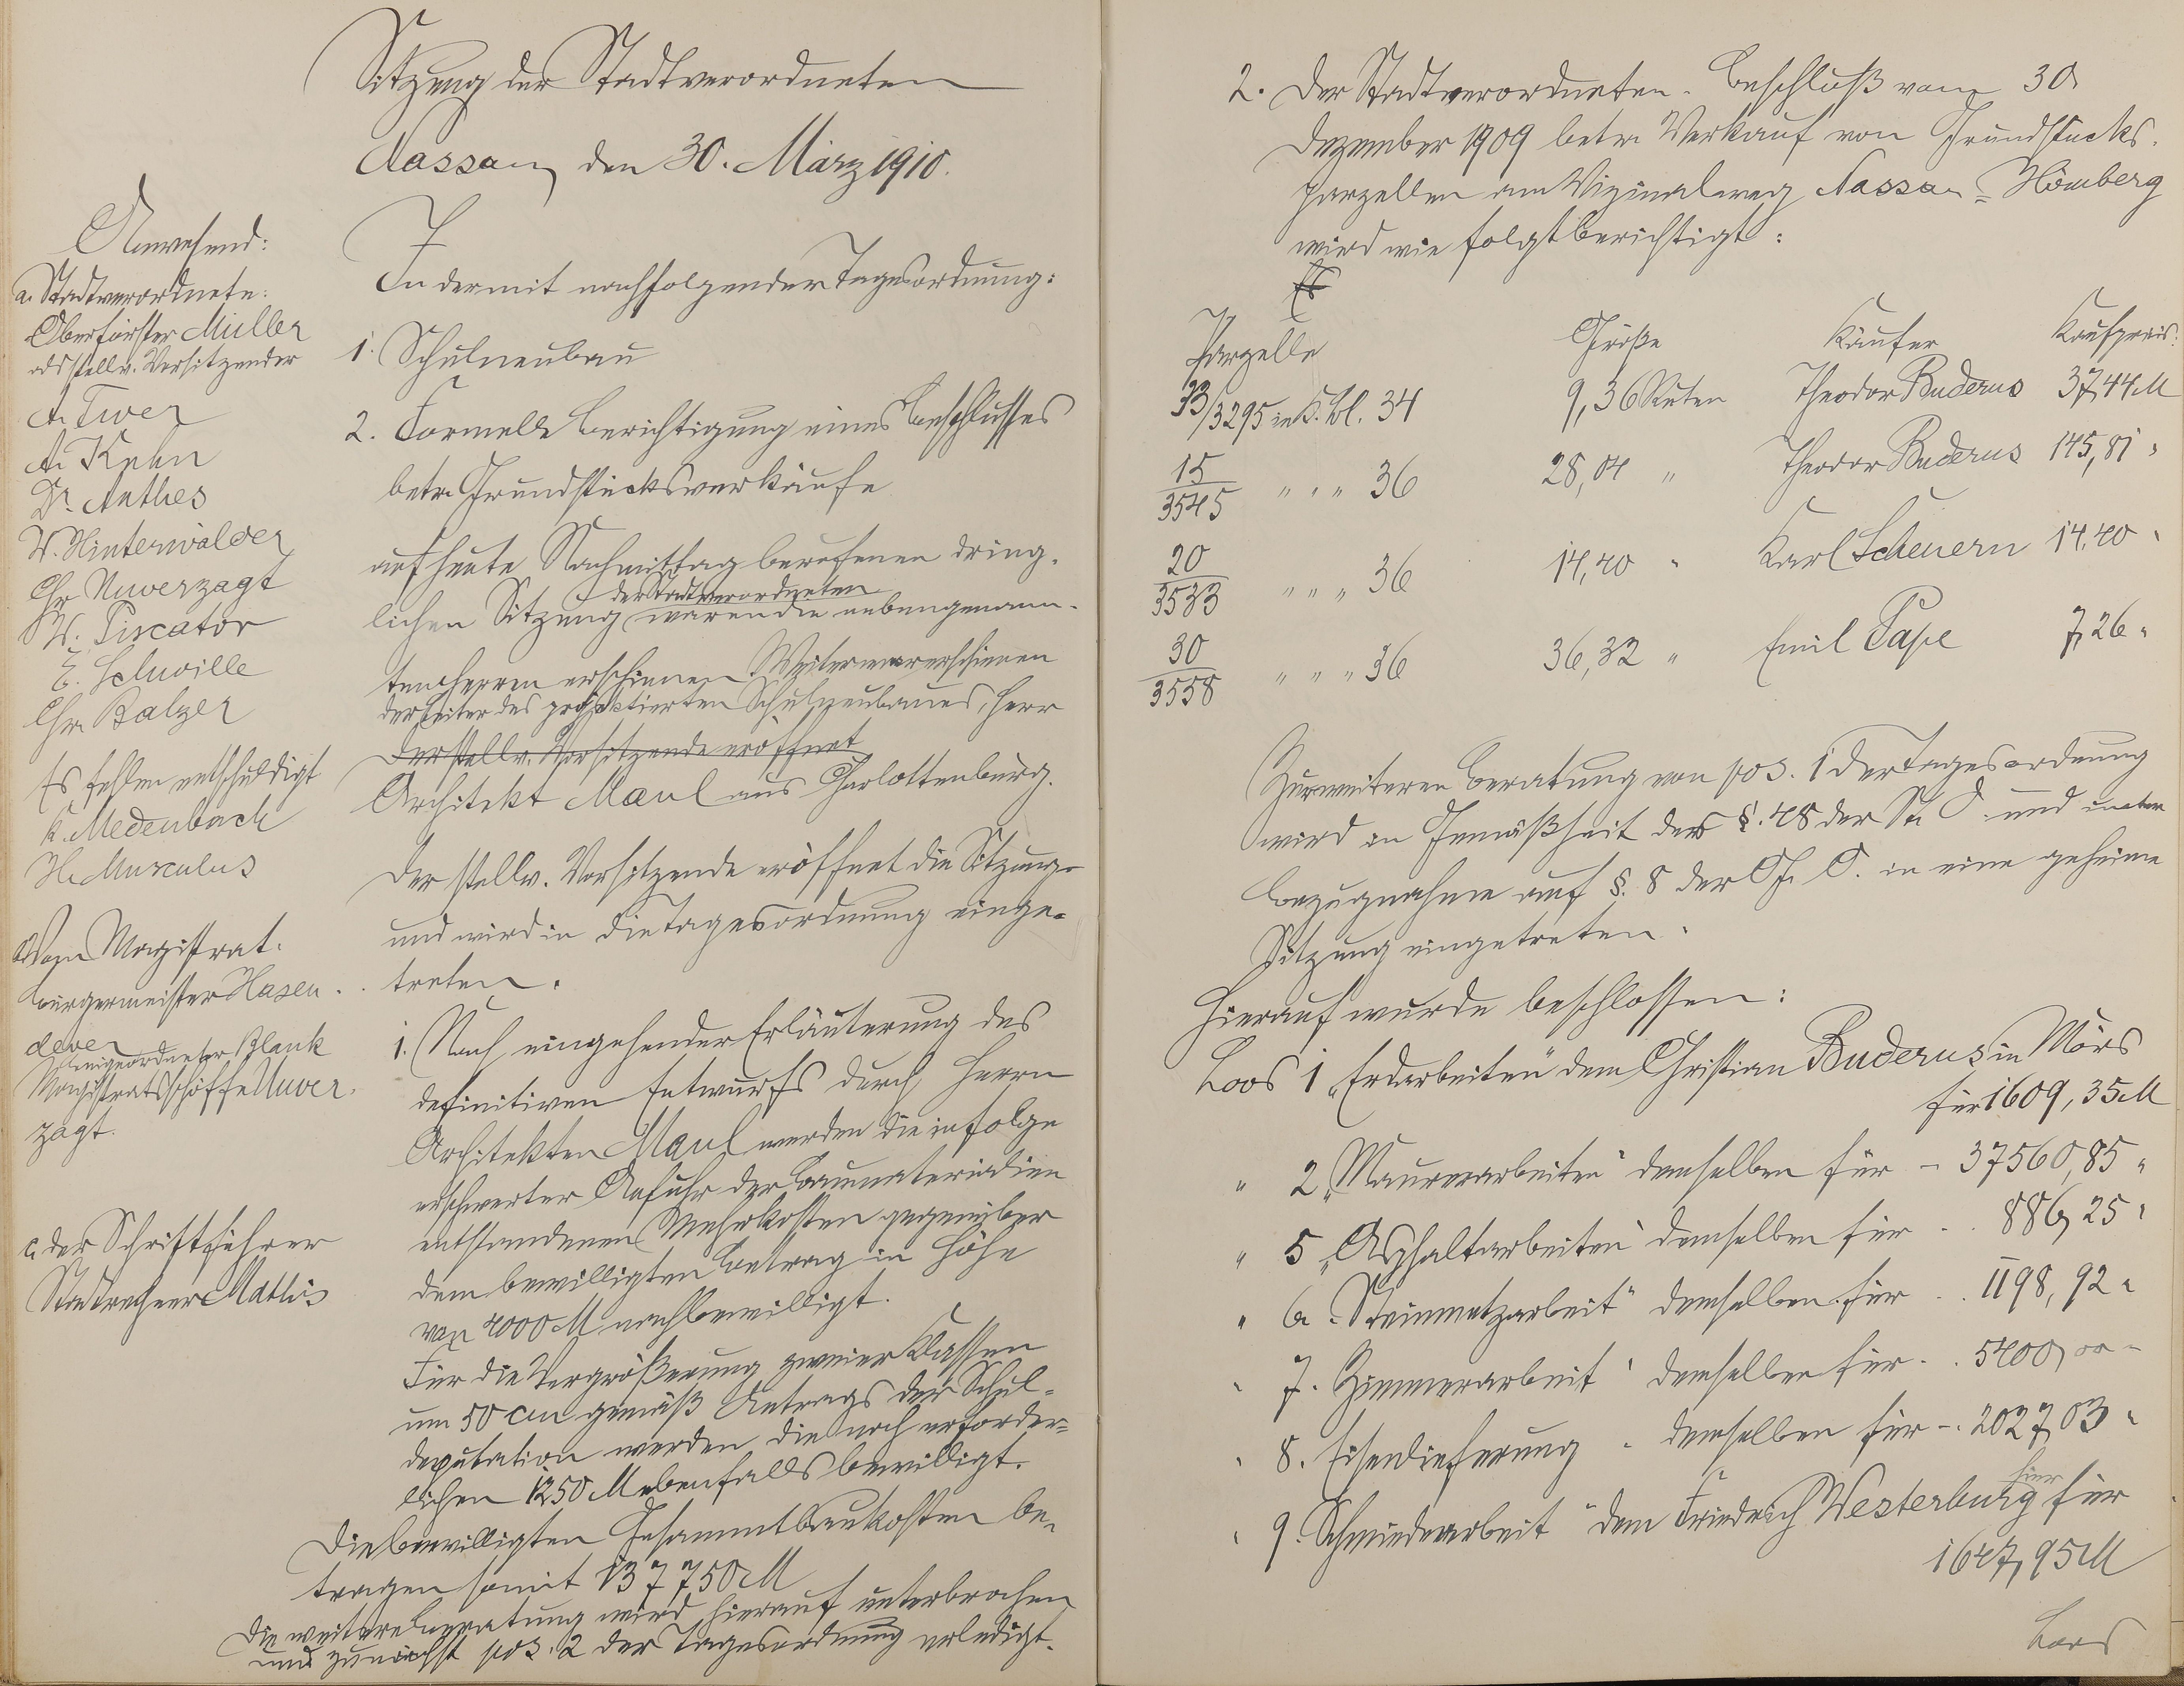 Sitzung der Stadtverordneten
Nassau, den 30. März 1910.
Anwesend:
a. Stadtverordnete:
Oberförster Müller
als stellv. Vorsitzender
A. Twer
A. Kuhn
Dr. Anthes
W. Hinterwälder
Chr. Unverzagt
W. Piscator
E. Schuville
Chr. Balzer
Es fehlen entschuldigt
K. Medenbach
H. Musculus
b. Vom Magistrat:
Bürgermeister Hasen-
clever
Beigeordneter Blank
Magistratsschöffe Unver-
zagt.
c. der Schriftführer
Stadtrechner Mathis
In der mit nachfolgender Tagesordnung:
1. Schulneubau
2. Formelle Berichtigung eines Beschlusses
betr. Grundstücksverkäufe
auf heute Nachmittag berufenen dring-
der Stadtverordneten
lichen Sitzung waren die nebengenann-
ten Herren erschienen. Weiter war erschienen
der Leiter des projektierten Schulneubaues, Herr
Der stellv. Vorsitzende eröffnet
Architekt Maul aus Charlottenburg.
Der stellv. Vorsitzende eröffnet die Sitzung
und wird in die Tagesordnung einge-
treten.
1. Nach eingehender Erläuterung des
definitiven Entwurfs durch Herrn
Architekten Maul werden die infolge
erschwerter Anfuhr der Baumaterialien
entstandenen Mehrkosten gegenüber
dem bewilligten Betrag in Höhe
von 4000 M nachbewilligt.
Für die Vergrößerung zweier Klassen
um 50 cm gemäß Antrags der Schul-
deputation werden die noch erforder-
lichen 1250 M ebenfalls bewilligt.
Die bewilligten Gesammtbaukosten be-
tragen somit 137750 M
Die weitere Beratung wird hierauf unterbrochen
und zunächst pos. 2 der Tagesordnung erledigt.
2. Der Stadtverordneten-Beschluß vom 30.
Dezember 1909 betr. Verkauf von Grundstücks-
parzellen am Vizinalweg Nassau-Hömberg
wird wie folgt berichtigt:
Es
Parzelle Größe Käufer Kaufpreis:
33/3295 in K. bl. 34 9,36 Ruten Theodor Buderus 37,44 M
15/3545 " " " 36 28,04 " Theodor Buderus 145,81 "
20/3533 " " " 36 14,40 " Karl Scheuern 14,40 "
30/3558 " " " 36 36,32 " Emil Pape 7,26 "
Zur weiteren Beratung von pos. 1 der Tagesordnung
wird in Gemäßheit des §. 48 der St. O. und unter
Bezugnahme auf §. 8 der G. O. in eine geheime
Sitzung eingetreten.
Hierauf wurde beschlossen:
Loos 1 „Erdarbeiten" dem Christian Buderus in Mörs
für 1609,35 M
" 2 „Maurerarbeiten" demselben für - 37560,85 "
" 5 „Asphaltarbeiten" demselben für . . 886,25 "
" 6a. Steinmetzarbeit" demselben für . . 1198,92 "
" 7. Zimmerarbeit" demselben für . . 5400,00 "
" 8. Eisenlieferung " demselben für -. 2027,03 "
hier
" 9. Schmiedearbeit " dem Friedrich Westerburg für
1647,95 M
Loos